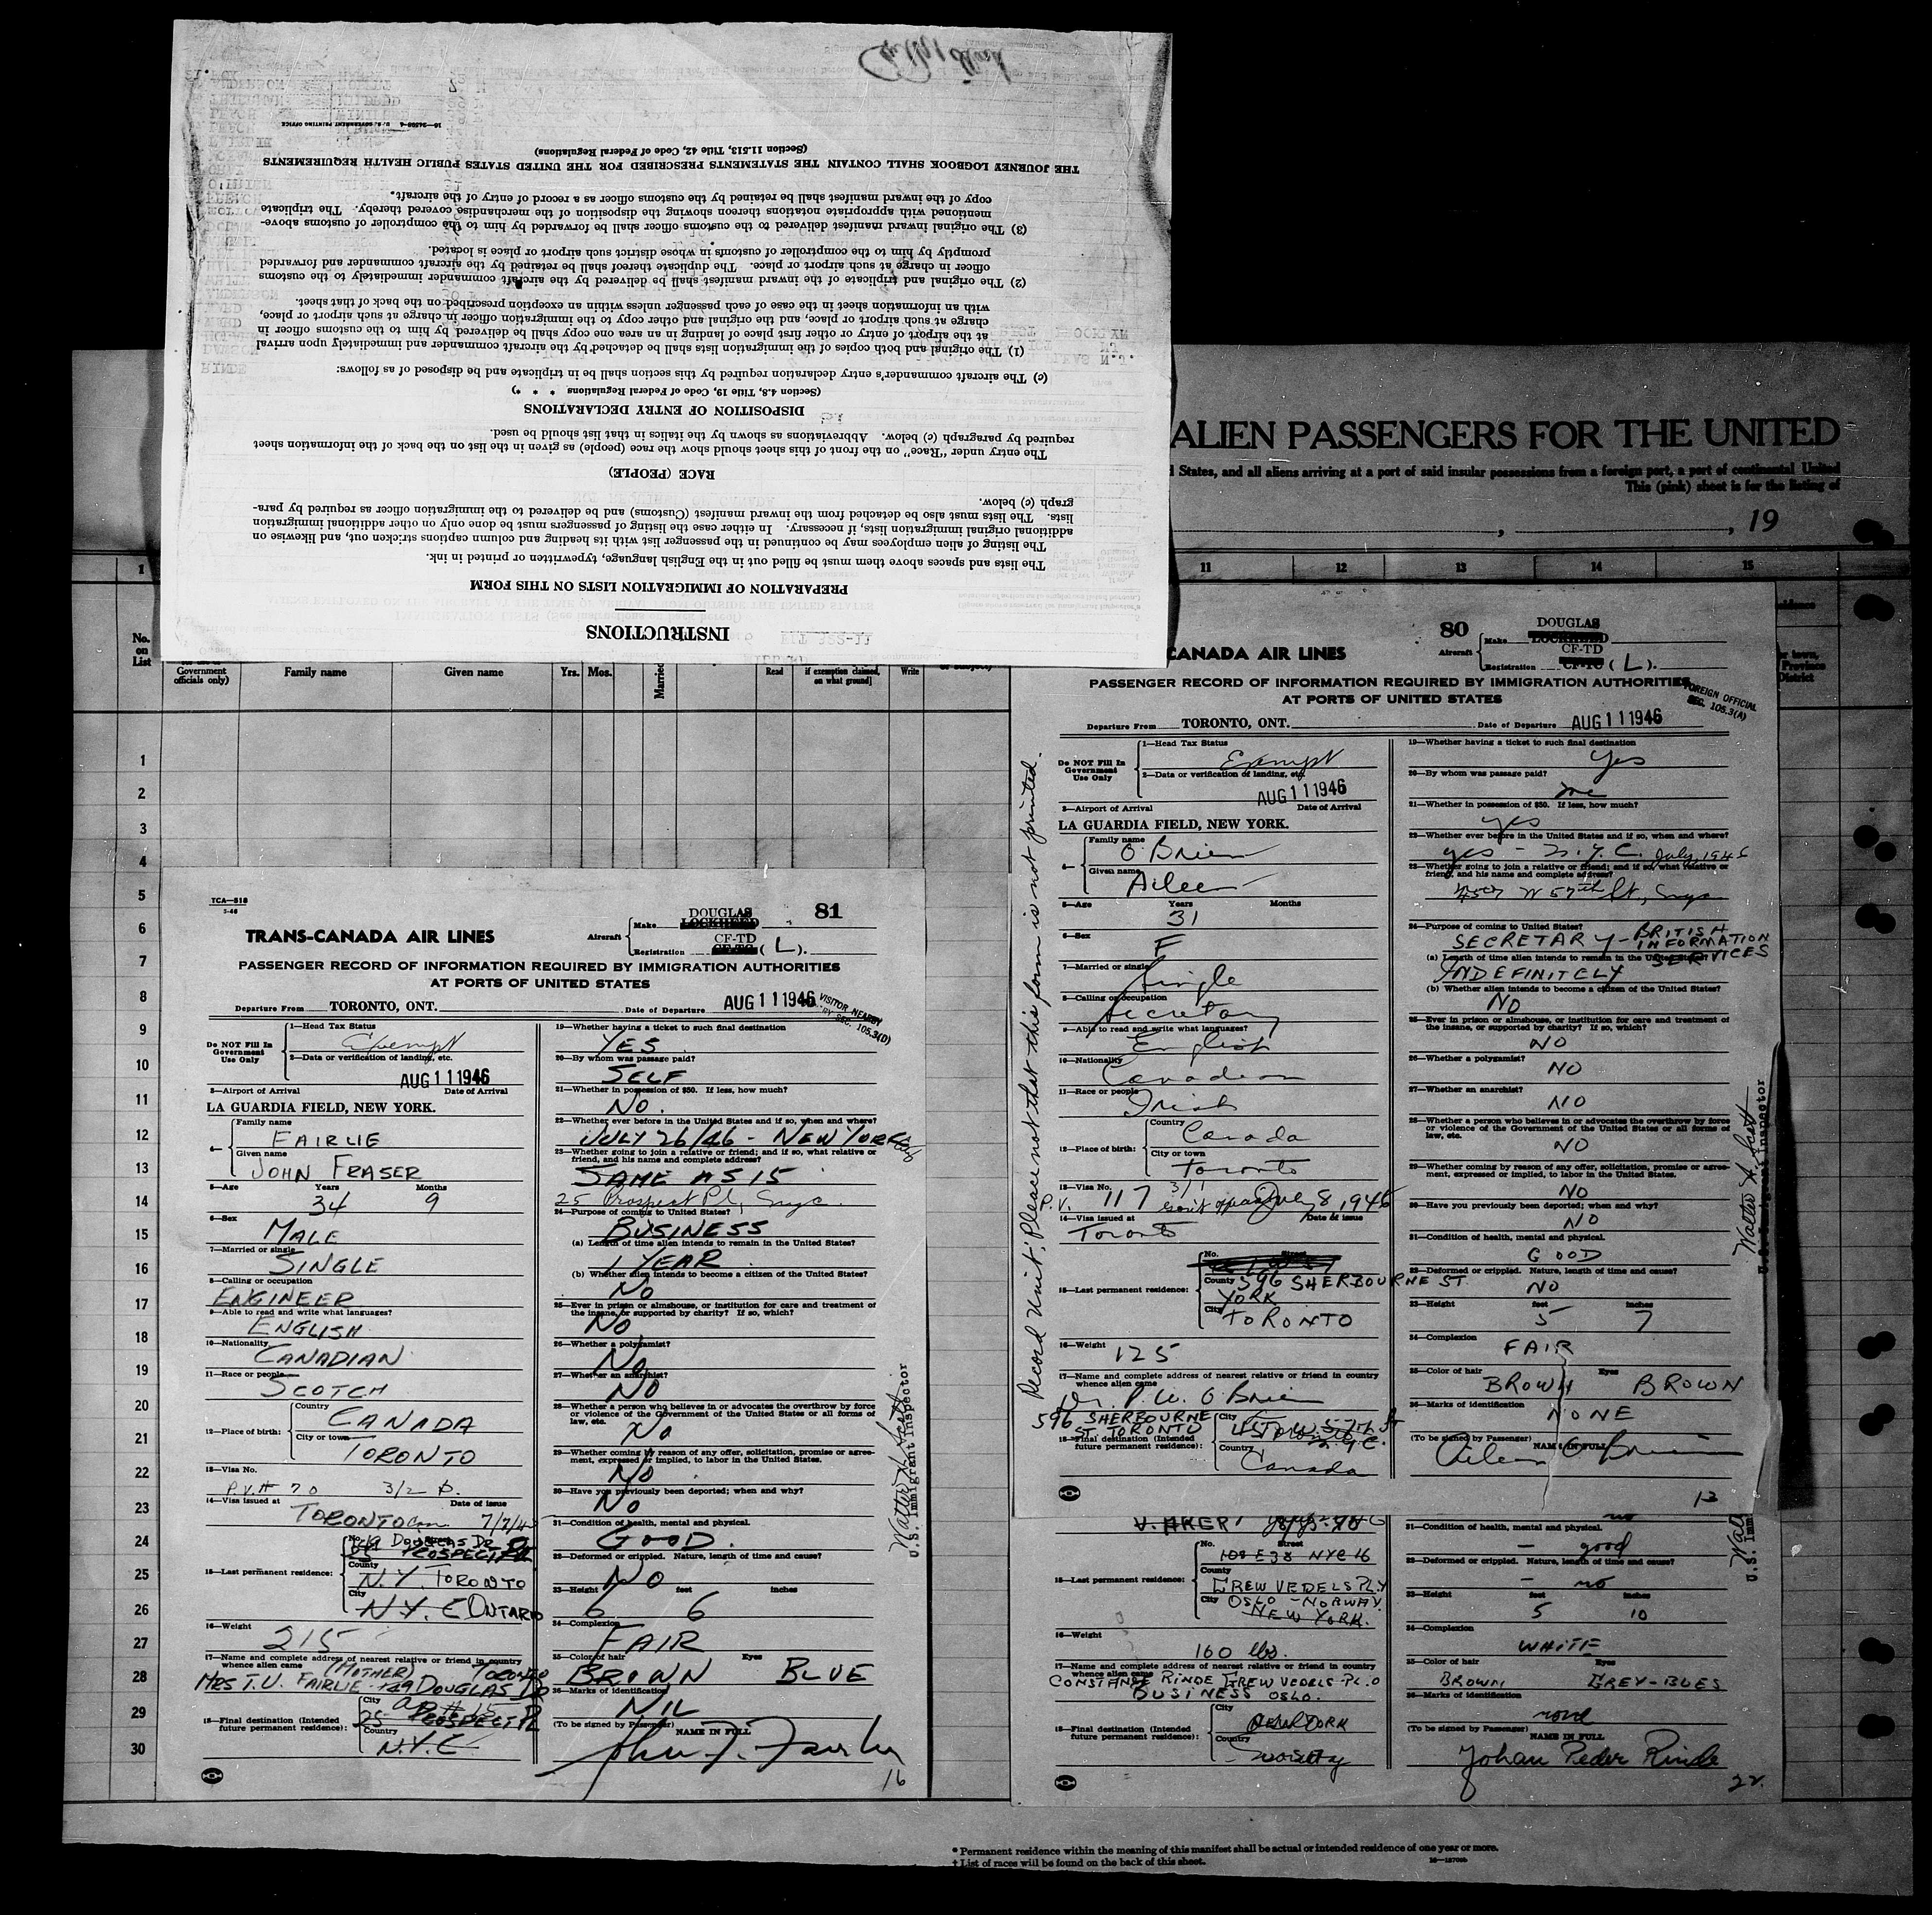 INSTRUCTIONS
PREPARATION OF IMMIGRATION LISTS ON THIS FORM
The lists and spaces above them must be filled out in the English language, typewritten or printed in ink.
The listing of alien employees may be continued in the passenger list with its heading and column captions stricken out, and likewise on
additional original immigration lists, if necessary. In either case the listing of passengers must be done only on other additional immigration
lists. The lists must also be detached from the inward manifest (Customs) and be delivered to the immigration officer as required by para-
graph (c) below.
RACE (PEOPLE)
The entry under "Race" on the front of this sheet should show the race (people) as given in the list on the back of the information sheet
required by paragraph (c) below. Abbreviations as shown by the italics in that list should be used.
DISPOSITION OF ENTRY DECLARATIONS
(Section 4.8, Title 19, Code of Federal Regulations * * *)
(c) The aircraft commander's entry declaration required by this section shall be in triplicate and be disposed of as follows:
(1) The original and both copies of the immigration lists shall be detached by the aircraft commander and immediately upon arrival
at the airport of entry or other first place of landing in an area one copy shall be delivered by him to the customs officer in
charge at such airport or place, and the original and other copy to the immigration officer in charge at such airport or place,
with an information sheet in the case of each passenger unless within an exception prescribed on the back of that sheet.
(2) The original and triplicate of the inward manifest shall be delivered by the aircraft commander immediately to the customs
officer in charge at such airport or place. The duplicate thereof shall be retained by the aircraft commander and forwarded
promptly by him to the comptroller of customs in whose district such airport or place is located.
(3) The original inward manifest delivered to the customs officer shall be forwarded by him to the comptroller of customs above-
mentioned with appropriate notations thereon showing the disposition of the merchandise covered thereby. The triplicate
copy of the inward manifest shall be retained by the customs officer as a record of entry of the aircraft.
THE JOURNEY LOGBOOK SHALL CONTAIN THE STATEMENTS PRESCRIBED FOR THE UNITED STATES PUBLIC HEALTH REQUIREMENTS
(Section 11.513, Title 42, Code of Federal Regulations)
U. S. GOVERNMENT PRINTING OFFICE
ALIEN PASSENGERS FOR THE UNITED
States, and all aliens arriving at a port of said insular possessions from a foreign port, a port of continental United
This (pink) sheet is for the listing of
, , 19
1 11 12 13 14 15
No.
on
List
Government
officials only)
Family name Given name Yrs. Mos. Married Read if exemption claimed,
on what ground] Write
1
2
3
4
5
6
7
8
9
10
11
12
13
14
15
16
17
18
19
20
21
22
23
24
25
26
27
28
29
30
TCA—518
81
TRANS-CANADA AIR LINES
Aircraft Make DOUGLAS LOCKHEED
Registration CF-TD CF-TC (L).
PASSENGER RECORD OF INFORMATION REQUIRED BY IMMIGRATION AUTHORITIES
AT PORTS OF UNITED STATES
Departure From TORONTO, ONT. Date of Departure AUG 11 1946
VISITOR NEARBY
SEC. 105.3(D)
Do NOT Fill In
Government
Use Only
1—Head Tax Status
Exempt
2—Data or verification of landing, etc.
AUG 11 1946
3—Airport of Arrival Date of Arrival
LA GUARDIA FIELD, NEW YORK.
4—
Family name
FAIRLIE
Given name
JOHN FRASER
5—Age Years Months
34 9
6—Sex
MALE
7—Married or single
SINGLE
8—Calling or occupation
ENGINEER
9—Able to read and write what languages?
ENGLISH
10—Nationality
CANADIAN
11—Race or people
SCOTCH
12—Place of birth:
Country
CANADA
City or town
TORONTO
13—Visa No.
P.V.# 70 3/2
14—Visa issued at Date of issue
TORONTO 7/7/4
15—Last permanent residence:
No. Street
DOUGLAS DR
25 PROSPECT PL
County
N.Y. TORONTO
City
N.Y.C ONTARIO
16—Weight
215
17—Name and complete address of nearest relative or friend in country
whence alien came
(MOTHER) TORONTO
MRS T.U. FAIRLIE DOUGLAS DR
18—Final destination (Intended
future permanent residence):
City
25 PROSPECT PL
Country
N.Y.C
19—Whether having a ticket to such final destination
YES
20—By whom was passage paid?
SELF
21—Whether in possession of $50. If less, how much?
NO.
22—Whether ever before in the United States and if so, when and where?
JULY 26/46 - NEW YORK
23—Whether going to join a relative or friend; and if so, what relative or
friend, and his name and complete address?
SAME AS 15
25 Prospect Pl, nyc.
24—Purpose of coming to United States?
BUSINESS
(a) Length of time alien intends to remain in the United States?
1 YEAR
(b) Whether alien intends to become a citizen of the United States?
NO
25—Ever in prison or almshouse, or institution for care and treatment of
the insane, or supported by charity? If so, which?
NO
26—Whether a polygamist?
NO
27—Whether an anarchist?
NO
28—Whether a person who believes in or advocates the overthrow by force
or violence of the Government of the United States or all forms of
law, etc.
NO
29—Whether coming by reason of any offer, solicitation, promise or agree-
ment, expressed or implied, to labor in the United States.
NO
30—Have you previously been deported; when and why?
NO
31—Condition of health, mental and physical.
GOOD.
32—Deformed or crippled. Nature, length of time and cause?
NO
33—Height feet inches
6 6
34—Complexion
FAIR
35—Color of hair Eyes
BROWN BLUE
36—Marks of identification
NIL
(To be signed by Passenger) NAME IN FULL
John F. Fairlie
16
U.S. Immigrant Inspector
80
CANADA AIR LINES
Aircraft Make DOUGLAS LOCKHEED
Registration CF-TD CF-TC (L).
PASSENGER RECORD OF INFORMATION REQUIRED BY IMMIGRATION AUTHORITIES
AT PORTS OF UNITED STATES
FOREIGN OFFICIAL
SEC. 105.3(A)
Departure From TORONTO, ONT. Date of Departure AUG 11 1946
Record Unit: Please not that this form is not printed.
Do NOT Fill In
Government
Use Only
1—Head Tax Status
Exempt
2—Data or verification of landing, etc.
AUG 11 1946
3—Airport of Arrival Date of Arrival
LA GUARDIA FIELD, NEW YORK.
4—
Family name
O'Brien
Given name
Aileen
5—Age Years Months
31
6—Sex
F
7—Married or single
Single
8—Calling or occupation
Secretary
9—Able to read and write what languages?
English
10—Nationality
Canadian
11—Race or people
Irish
12—Place of birth:
Country
Canada
City or town
Toronto
13—Visa No.
P.V. 117 3/1 July 8, 1946
14—Visa issued at Date of issue
Toronto
15—Last permanent residence:
No. Street
County 596 SHERBOURNE ST.
YORK
City
TORONTO
16—Weight
125
17—Name and complete address of nearest relative or friend in country
whence alien came
Dr. P. W. O'Brien
596 SHERBOURNE
ST. TORONTO
18—Final destination (Intended
future permanent residence):
City
Country
Canada
19—Whether having a ticket to such final destination
Yes
20—By whom was passage paid?
me
21—Whether in possession of $50. If less, how much?
yes
22—Whether ever before in the United States and if so, when and where?
yes - N.Y.C. July, 1946
23—Whether going to join a relative or friend; and if so, what relative or
friend, and his name and complete address?
W 57th St., nyc
24—Purpose of coming to United States?
SECRETARY - BRITISH
INFORMATION
SERVICES
(a) Length of time alien intends to remain in the United States?
INDEFINITELY
(b) Whether alien intends to become a citizen of the United States?
NO
25—Ever in prison or almshouse, or institution for care and treatment of
the insane, or supported by charity? If so, which?
NO
26—Whether a polygamist?
NO
27—Whether an anarchist?
NO
28—Whether a person who believes in or advocates the overthrow by force
or violence of the Government of the United States or all forms of
law, etc.
NO
29—Whether coming by reason of any offer, solicitation, promise or agree-
ment, expressed or implied, to labor in the United States.
NO
30—Have you previously been deported; when and why?
NO
31—Condition of health, mental and physical.
GOOD
32—Deformed or crippled. Nature, length of time and cause?
NO
33—Height feet inches
5 7
34—Complexion
FAIR
35—Color of hair Eyes
BROWN BROWN
36—Marks of identification
NONE
(To be signed by Passenger) NAME IN FULL
Aileen O'Brien
13
Walter A. Scott
U.S. Immigrant Inspector
15—Last permanent residence:
No. Street
108 E 38 NYC 16
County
GREW VEDELS PL. 4
City OSLO - NORWAY.
NEW YORK.
16—Weight
160 lbs.
17—Name and complete address of nearest relative or friend in country
whence alien came
CONSTANSE RINDE GREW VEDELS PL. 0
BUSINESS OSLO.
18—Final destination (Intended
future permanent residence):
City
NEW YORK
Country
no
31—Condition of health, mental and physical.
— good
32—Deformed or crippled. Nature, length of time and cause?
— no
33—Height feet inches
5 10
34—Complexion
WHITE
35—Color of hair Eyes
BROWN GREY-BLUES
36—Marks of identification
none
(To be signed by Passenger) NAME IN FULL
Johan Peder Rinde
22
* Permanent residence within the meaning of this manifest shall be actual or intended residence of one year or more.
† List of races will be found on the back of this sheet.